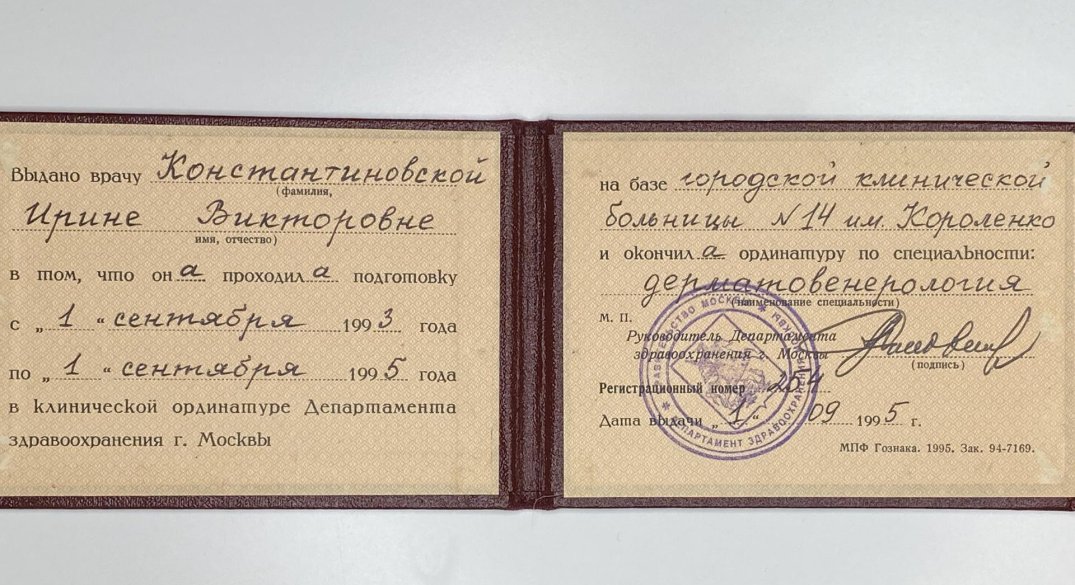 Выдано врачу Константиновской
(фамилия,
Ирине Викторовне
имя, отчество)
в том, что она проходила подготовку
с „1“ сентября 1993 года
по „1“ сентября 1995 года
в клинической ординатуре Департамента
здравоохранения г. Москвы
на базе городской клинической
больницы N 14 им. Короленко
и окончила ординатуру по специальности:
дерматовенерология
(наименование специальности)
М. П.
Руководитель Департамента
здравоохранения г. Москвы
(подпись)
Регистрационный номер 264
Дата выдачи „1“ 09 1995 г.
МПФ Гознака. 1995. Зак. 94-7169.
ПРАВИТЕЛЬСТВО МОСКВЫ
ДЕПАРТАМЕНТ ЗДРАВООХРАНЕНИЯ